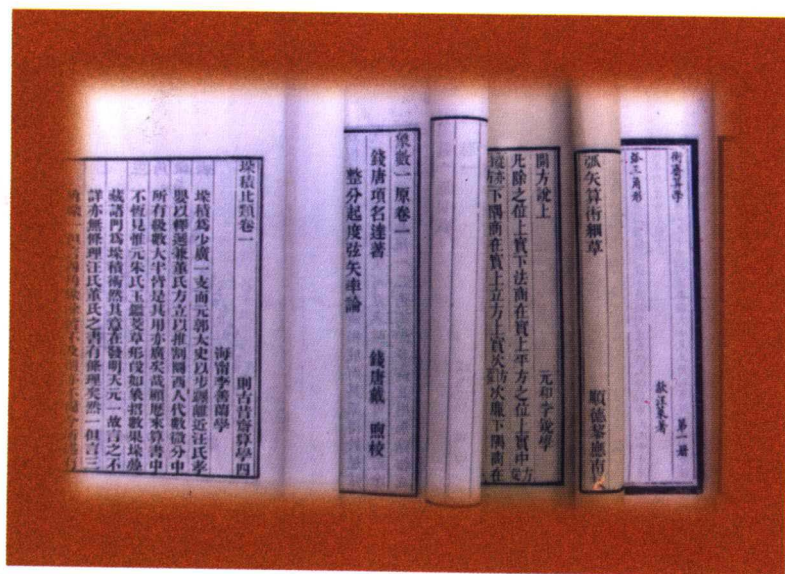 衡齋算學 第一册
歙汪萊著
弧三角形
弧矢算術細草
順德黎應南
開方說上
元和李銳學
凡除之位上實下法商在實上平方之位上實中方
下隅商在實上立方上實次方次廉下隅商在
象數一原卷一
錢唐項名達著 錢唐戴煦校
整分起度弦矢率論
垛積比類卷一 則古昔齋算學四
海甯李善蘭學
垛積爲少廣一支而元郭太史以步躔離近汪氏孝
嬰以釋遞兼董氏方立以推割圜西人代數微分中
所有級數大半皆是其用亦廣矣哉顧歷來算書中
不恆見惟元朱氏玉鑑茭草形段如象招數果垛疊
藏諸門爲垛積術然其意在發明天元一故言之不
詳亦無條理汪氏董氏之書有條理矣然一但言三